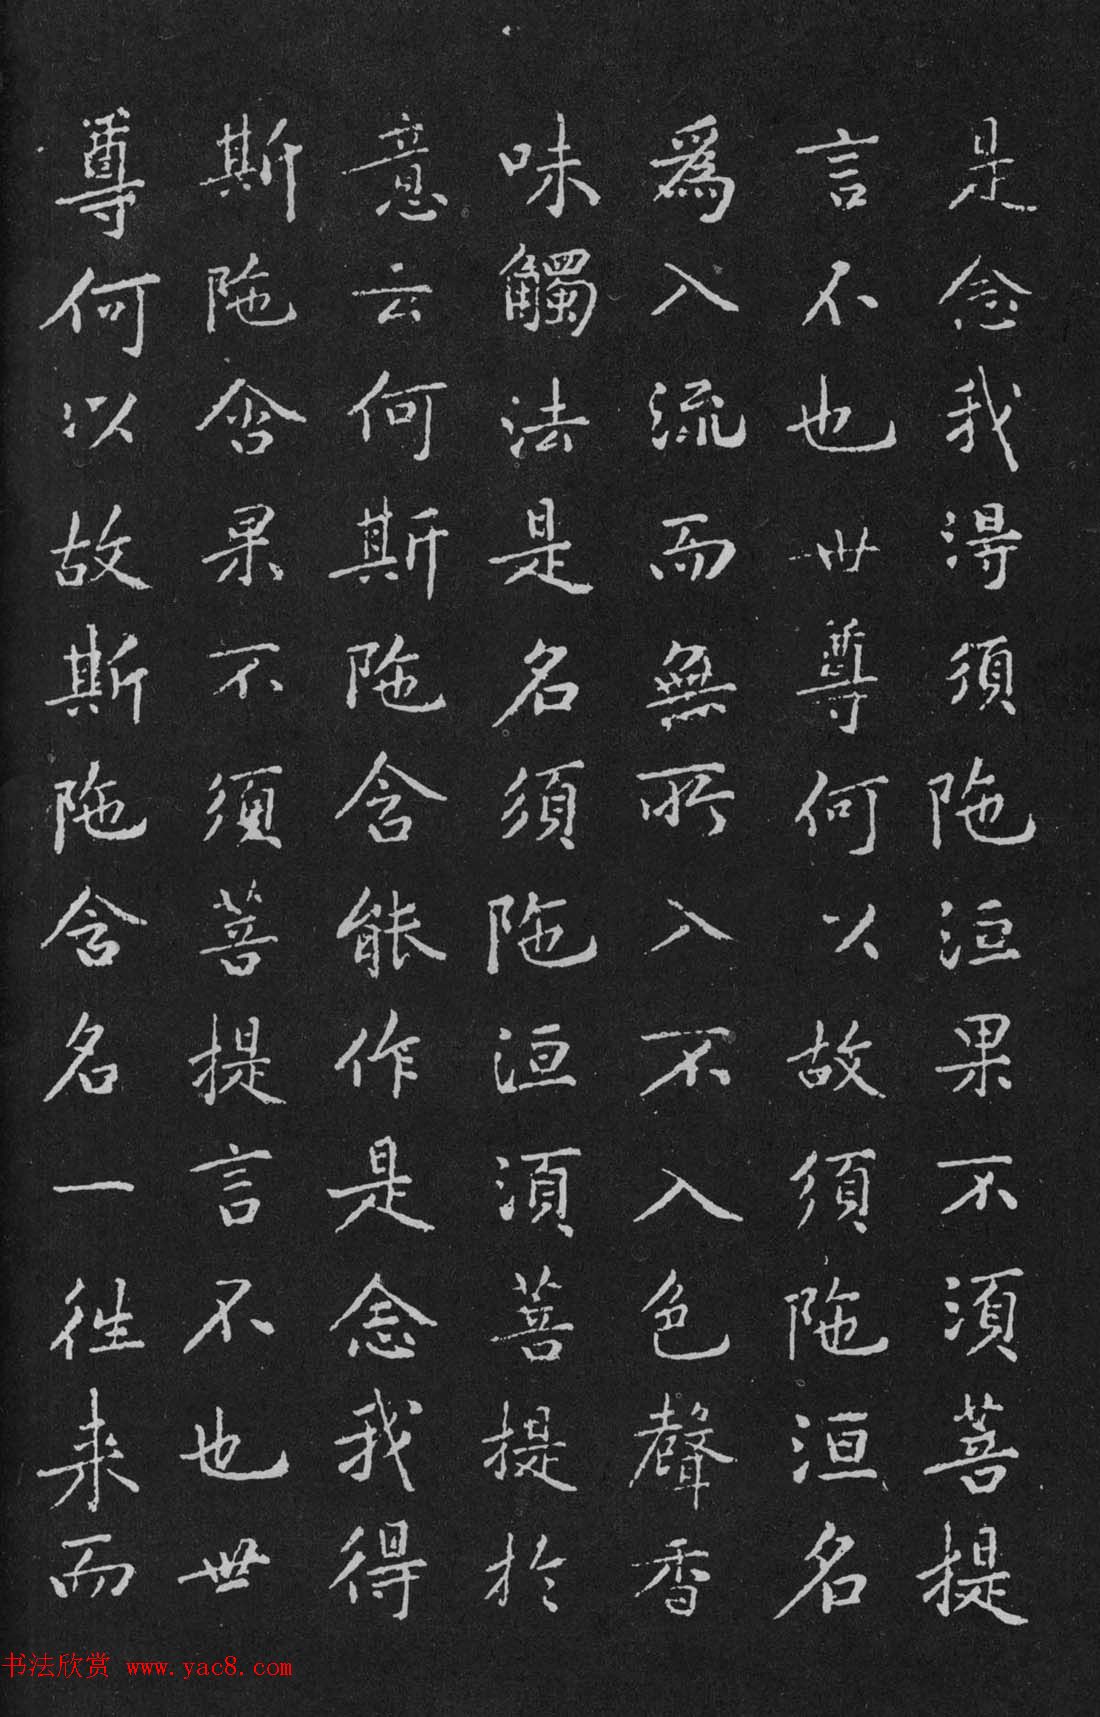 是念我得須陁洹果不須菩提
言不也世尊何以故須陁洹名
爲入流而無所入不入色聲香
味觸法是名須陁洹須菩提於
意云何斯陁含能作是念我得
斯陁含果不須菩提言不也世
尊何以故斯陁含名一往来而
书法欣赏 www.yac8.com